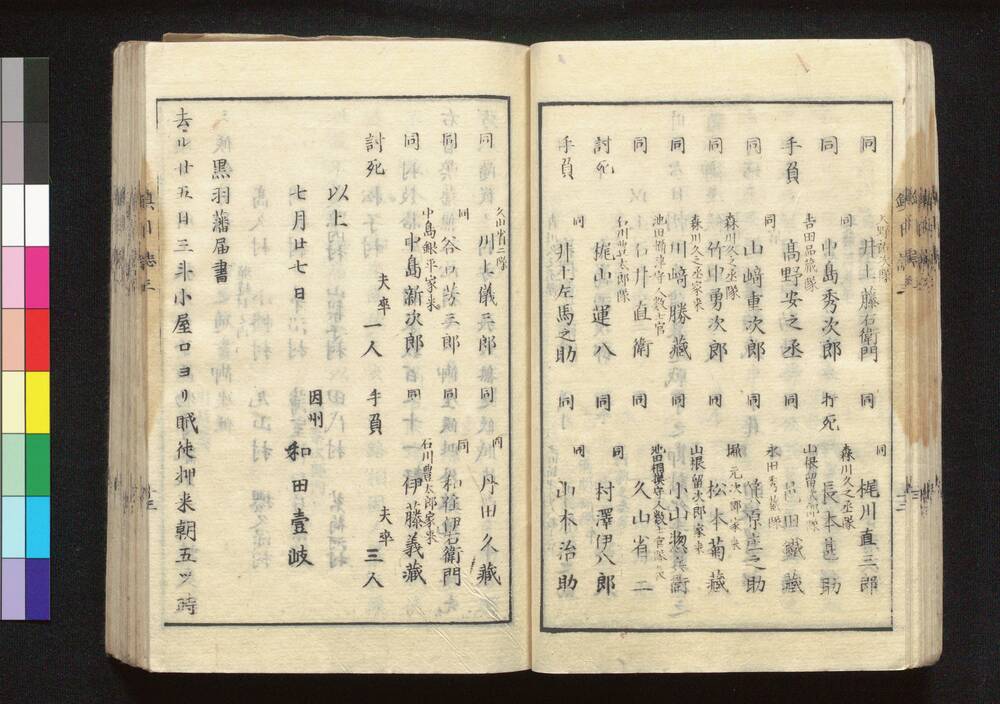 同 井上藤右衛門 同 同 梶川直三郎
同 同 中島秀次郎 打死 森川久之丞隊 長本甚助
手負 吉田品蔵隊 髙野安之丞 同 山根留次郎隊 田鐵藏
同 同 山﨑重次郎 同 永田秀蔵隊 原直之助
同 森川久之丞隊 竹中勇次郎 同 堀元次郎家来 松本菊藏
同 森川久之丞家来 川﨑勝藏 同 山根留次郎家来 小山惣兵衛
同 池田相模守人数士官 石井直衛 同 池田相摸守人数士官隊 久山省二
討死 石川豊太郎隊 梶山蓮八 同 同 村澤伊八郎
手負 同 井上左馬之助 同 同 山木治助
同 久山省二隊 川上儀兵郎 同 同 丹田久藏
同 同 谷口芳三郎 同 同 和在伊右衛門
同 中島銀平家来 中島新次郎 同 石川豊太郎家来 伊藤義藏
討死 夫卒一人 手負 夫卒三人
以上
七月廿七日 因州 和田壹岐
黒羽藩届書
去ル廿五日三斗小屋口ヨリ賊徒押来朝五ツ時